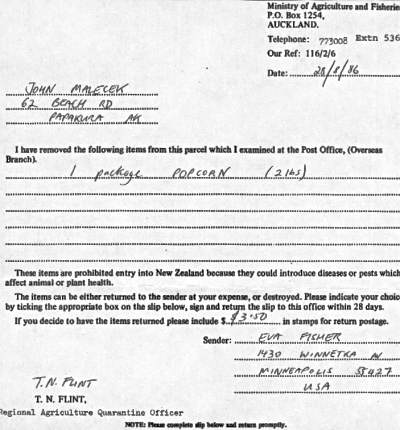 Ministry of Agriculture and Fisheries
P.O. Box 1254,
AUCKLAND.
Telephone: 773008 Extn 536
Our Ref: 116/2/6
Date: 28/8/86
JOHN MALECEK
62 BEACH RD
PAPAKURA AK
I have removed the following items from this parcel which I examined at the Post Office, (Overseas
Branch).
1 package POPCORN (2 lbs)
These items are prohibited entry into New Zealand because they could introduce diseases or pests which
affect animal or plant health.
The items can be either returned to the sender at your expense, or destroyed. Please indicate your choice
by ticking the appropriate box on the slip below, sign and return the slip to this office within 28 days.
If you decide to have the items returned please include $ $3.50 in stamps for return postage.
Sender: EVA FISHER
1430 WINNETKA N
MINNEAPOLIS 55427
USA
T.N. FLINT
T. N. FLINT,
Regional Agriculture Quarantine Officer
NOTE: Please complete slip below and return promptly.